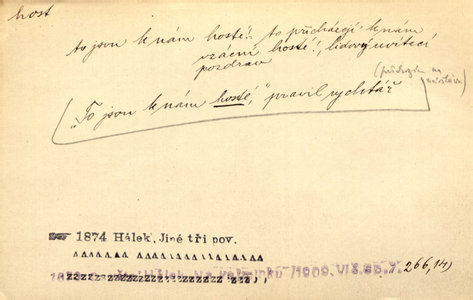 host
to jsou k nám hosté! to přicházejí k nám
vzácní hosté!, lidový uvítací
pozdrav
(příchozím na
„To jsou k nám hosté," pravil rychtář
1874 Hálek, Jiné tři pov.
266,14)